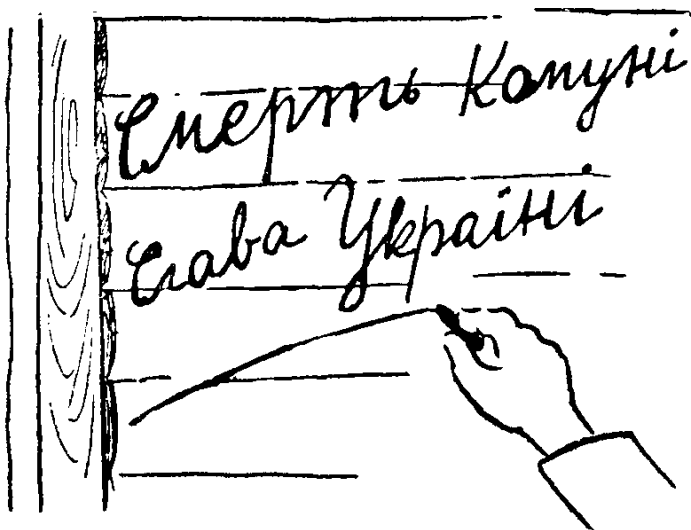 Смерть Комуні
Слава Україні